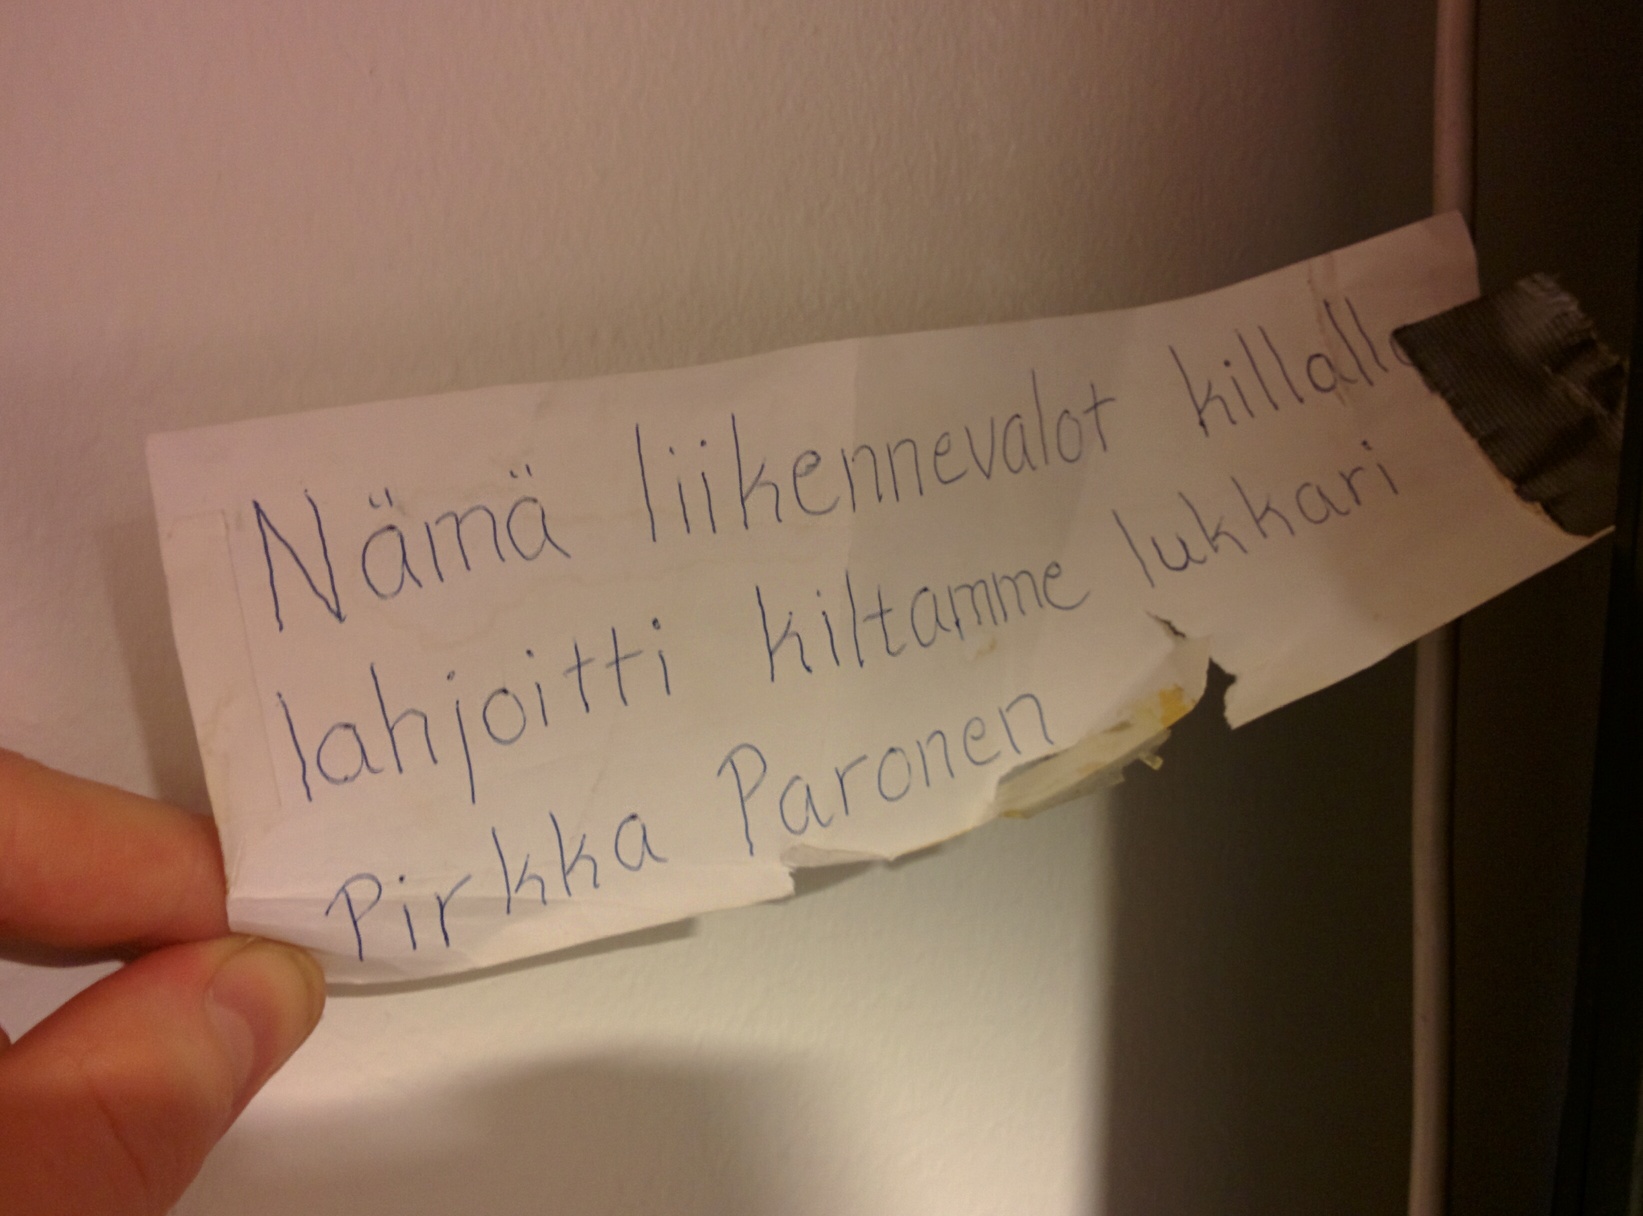 Nämä liikennevalot killalle
lahjoitti kiltamme lukkari
Pirkka Paronen